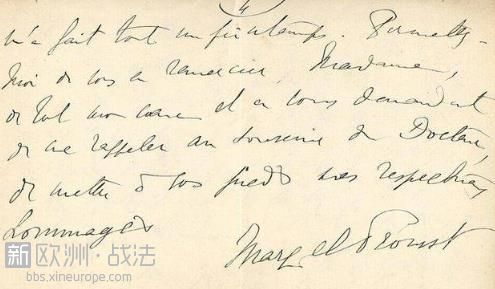 4
m'a fait tout un printemps. Permettez-
moi de vous en remercier, Madame,
de tout mon cœur et en vous demandant
de me rappeler au souvenir du Docteur,
de mettre à vos pieds mes respectueux
hommages
Marcel Proust
新欧洲·战法
bbs.xineurope.com